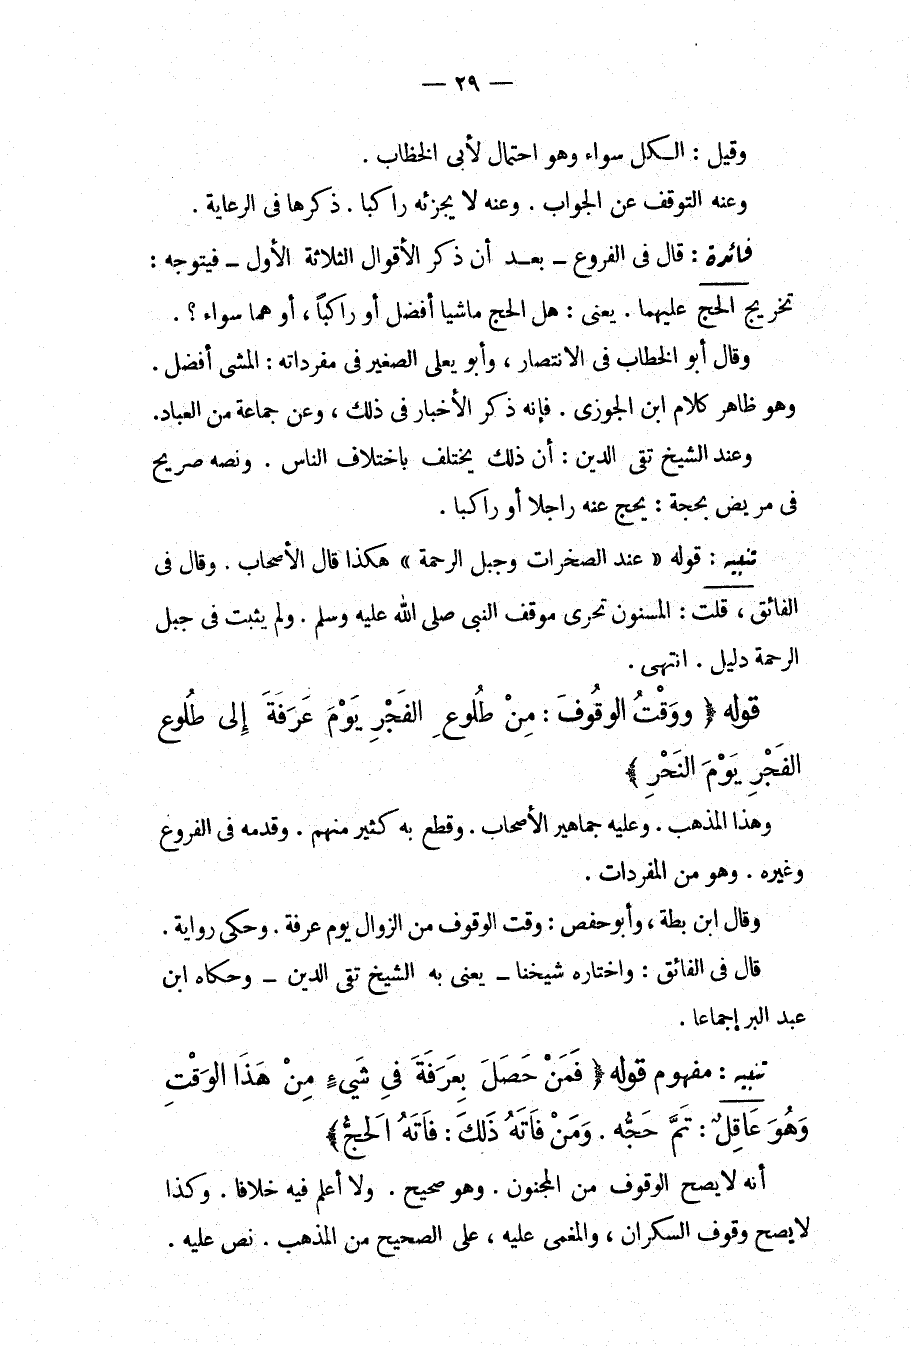 — ٢٩ —
وقيل : الكل سواء وهو احتمال لأبى الخطاب .
وعنه التوقف عن الجواب . وعنه لا يجزئه راكبا . ذكرها فى الرعاية .
فائدة : قال فى الفروع ــ بعد أن ذكر الأقوال الثلاثة الأول ــ فيتوجه :
تخريج الحج عليهما . يعنى : هل الحج ماشيا أفضل أو راكباً ، أو هما سواء ؟ .
وقال أبو الخطاب فى الانتصار ، وأبو يعلى الصغير فى مفرداته : المشى أفضل .
وهو ظاهر كلام ابن الجوزى . فإنه ذكر الأخبار فى ذلك ، وعن جماعة من العباد.
وعند الشيخ تقى الدين : أن ذلك يختلف باختلاف الناس . ونصه صريح
فى مريض بحجة : يحج عنه راجلا أو راكبا .
تنبيه : قوله « عند الصخرات وجبل الرحمة » هكذا قال الأصحاب . وقال فى
الفائق ، قلت : المسنون تحرى موقف النبى صلى الله عليه وسلم . ولم يثبت فى جبل
الرحمة دليل . انتهى .
قوله ﴿ ووَقْتُ الوقُوفَ : مِنْ طلُوعِ الفَجْرِ يَوْمَ عَرَفَةَ إِلى طلُوع
الفَجْرِ يَوْمَ النَحْرِ ﴾
وهذا المذهب . وعليه جماهير الأصحاب . وقطع به كثير منهم . وقدمه فى الفروع
وغيره . وهو من المفردات .
وقال ابن بطة ، وأبوحفص : وقت الوقوف من الزوال يوم عرفة . وحكى رواية .
قال فى الفائق : واختاره شيخنا ــ يعنى به الشيخ تقى الدين ــ وحكاه ابن
عبد البر إجماعا .
تنبيه : مفهوم قوله ﴿ فَمَنْ حَصَلَ بِعَرَفَةَ فيِ شَيءٍ مِنْ هَذَا الوَقْتِ
وَهُوَ عَاقِلٌ : تَمَّ حَجُّه . وَمَنْ فاَتَهُ ذَلكَ : فاَتَهُ الَحجُّ ﴾
أنه لا يصح الوقوف من المجنون . وهو صحيح . ولا أعلم فيه خلافا . وكذا
لا يصح وقوف السكران ، والمغمى عليه ، على الصحيح من المذهب . نص عليه .